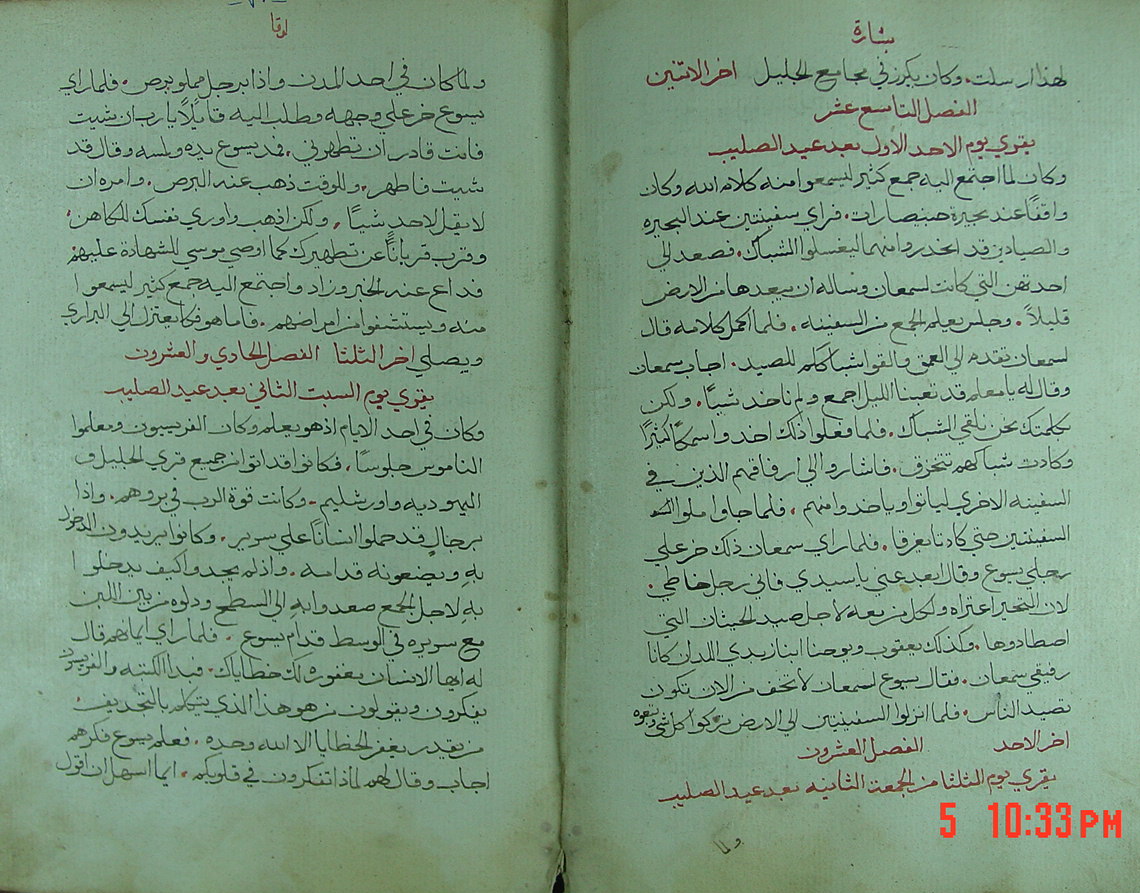 بشارة
لهذا ارسلت. وكان يكرز في مجامع الجليل اخر الاثنين
الفصل التاسع عشر
يقري يوم الاحد الاول بعد عيد الصليب
وكان لما اجتمع اليه جمع كثير ليسمعوا منه كلام الله وكان
واقفًا عند بحيرة جينصارات. فراي سفينتين عند البحيره
والصيادين قد انحدروا منهما ليغسلوا الشباك. فصعد الي
احدتهن التي كانت لسمعان وساله ان يبعدها من الارض
قليلاً. وجلس يعلم الجمع من السفينه. فلما اكمل كلامه قال
لسمعان تقدم الي العمق والقوا شباككم للصيد. اجاب سمعان
وقال له يا معلم قد تعبنا الليل اجمع ولم ناخد شيًا. ولكن
بكلمتك نحن نلقي الشباك. فلما فعلوا ذلك اخدوا سمكًا كثيرًا
وكادت شباكهم تتخرق. فاشاروا الي ارفاقهم الذين في
السفينه الاخري لياتوا وياخدوا منهم. فلما جاوا ملوا
السفينتين حتي كادتا يغرقا. فلما راي سمعان ذلك خر علي
رجلي يسوع وقال ابعد عني يا سيدي فاني رجل خاطي.
لان التحير اعتراه ولكل من معه لاجل صيد الحيتان التي
اصطادوها. وكذلك يعقوب ويوحنا ابنا زبدي اللدان كانا
رفيقي سمعان. فقال يسوع لسمعان لا تخف من الان تكون
تصيد الناس. فلما انزلوا السفينتين الي الارض تركوا كل شي وتبعوه
اخر الاحد الفصل العشرون
يقري يوم الثلثا من الجمعة الثانيه بعد عيد الصليب
ولما
لوقا
ولما كان في احد المدن واذا برجل مملو برص. فلما راي
يسوع خر علي وجهه وطلب اليه قايلًا يا رب ان شيت
فانت قادر ان تطهرني. فمد يسوع يده ولمسه وقال قد
شيت فاطهر. وللوقت ذهب عنه البرص. وامره ان
لا يقل لاحد شيًا. ولكن اذهب واوري نفسك للكاهن.
وقرب قربانًا عن تطهيرك كما اوصي موسي للشهادة عليهم
فداع عنه الخبر وزاد واجتمع اليه جمع كثير ليسمعوا
منه ويستشفوا من امراضهم. فاما هو فكان يعتزل الي البراري
ويصلي اخر الثلثا الفصل الحادي والعشرون
يقري يوم السبت الثاني بعد عيد الصليب
وكان في احد الايام اذ هو يعلم وكان الفريسيون ومعلموا
الناموس جلوسًا. فكانوا قد اتوا من جميع قري الجليل و
اليهوديه واورشليم. وكانت قوة الرب في بروهم. واذا
برجال قد حملوا انسانًا علي سرير. وكانوا يريدون الدخول
به ويضعونه قدامه. واذ لم يجدوا كيف يدخلوا
به لاجل الجمع صعدوا به الي السطح ودلوه من بين اللبن
مع سريره في الوسط قدام يسوع. فلما راي ايمانهم قال
له ايها الانسان مغفورة لك خطاياك. فبدا الكتبه والفريسيون
يفكرون ويقولون من هو هذا الذي يتكلم بالتجديف.
من يقدر يغفر الخطايا الا الله وحده. فعلم يسوع فكرهم
اجاب وقال لهم لماذا تفكرون في قلوبكم. ايما اسهل ان اقول
5 10:33PM